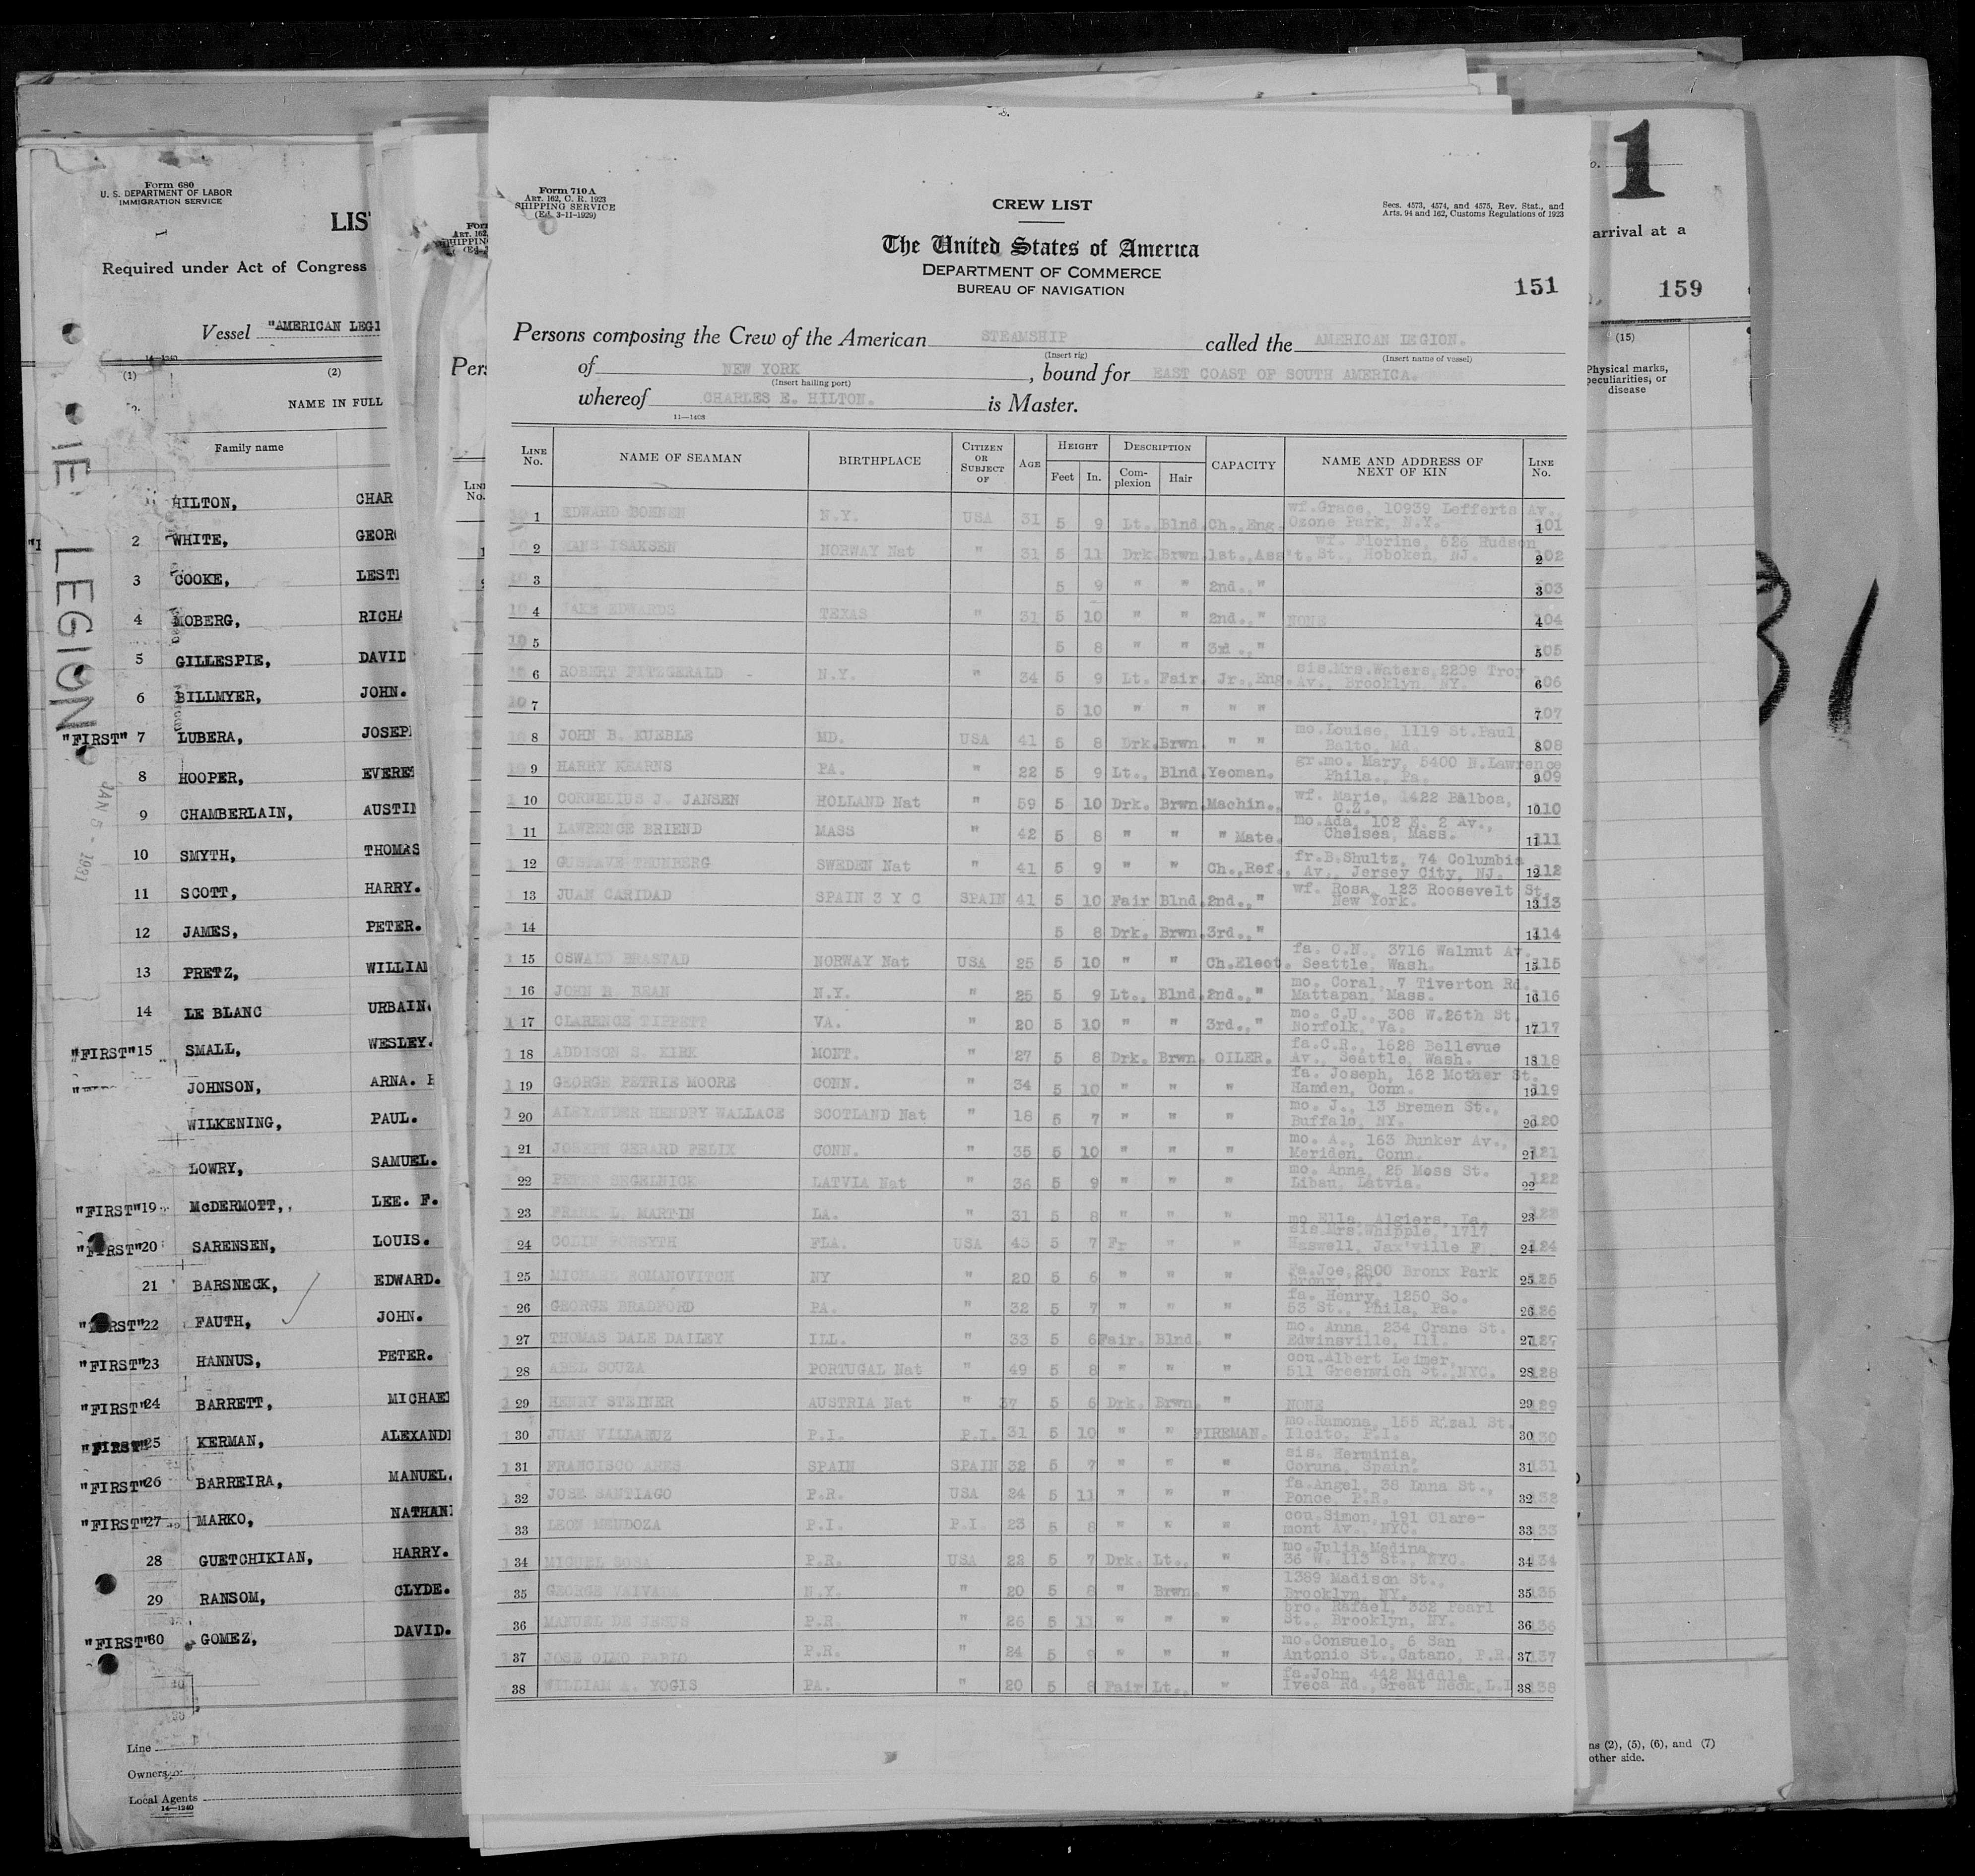 Form 680
U. S. DEPARTMENT OF LABOR
IMMIGRATION SERVICE
LIS
Required under Act of Congress
Vessel "AMERICAN LEGI
14—1240
(1) (2)
NAME IN FULL
Family name
HILTON, CHAR
2 WHITE, GEOR
3 COOKE, LEST
4 MOBERG, RICHA
5 GILLESPIE, DAVID
6 BILLMYER, JOHN.
"FIRST" 7 LUBERA, JOSEP
8 HOOPER, EVERE
9 CHAMBERLAIN, AUSTIN
10 SMYTH, THOMAS
11 SCOTT, HARRY.
12 JAMES, PETER.
13 PRETZ, WILLIA
14 LE BLANC URBAIN.
"FIRST" 15 SMALL, WESLEY.
JOHNSON, ARNA.
WILKENING, PAUL.
LOWRY, SAMUEL.
"FIRST" 19 McDERMOTT, LEE. F.
"FIRST" 20 SARENSEN, LOUIS.
21 BARSNECK, EDWARD.
"FIRST" 22 FAUTH, JOHN.
"FIRST" 23 HANNUS, PETER.
"FIRST" 24 BARRETT, MICHAE
"FIRST" 25 KERMAN, ALEXAND
"FIRST" 26 BARREIRA, MANUEL.
"FIRST" 27 MARKO, NATHAN
28 GUETCHIKIAN, HARRY.
29 RANSOM, CLYDE.
"FIRST" 30 GOMEZ, DAVID.
Line
Owners
Local Agents
14—1240
IE LEGION
JAN 5 - 1931
Form 710 A
ART. 162, C. R. 1923
SHIPPING SERVICE
(Ed. 3-11-1929)
CREW LIST
Secs. 4573, 4574, and 4575, Rev. Stat., and
Arts. 94 and 162, Customs Regulations of 1923
The United States of America
DEPARTMENT OF COMMERCE
BUREAU OF NAVIGATION
151
Persons composing the Crew of the American STEAMSHIP called the AMERICAN LEGION.
(Insert rig) (Insert name of vessel)
of NEW YORK, bound for EAST COAST OF SOUTH AMERICA.
(Insert hailing port)
whereof CHARLES E. HILTON. is Master.
11—1408
LINE No. NAME OF SEAMAN BIRTHPLACE CITIZEN OR SUBJECT OF AGE HEIGHT Feet In. DESCRIPTION Complexion Hair CAPACITY NAME AND ADDRESS OF NEXT OF KIN LINE No.
1 EDWARD BOHNEN N.Y. USA 31 5 9 Lt. Blnd. Ch., Eng. wf. Grace, 10939 Lefferts Av. Ozone Park, N.Y. 1 101
2 HANS ISAKSEN NORWAY Nat " 31 5 11 Drk. Brwn. 1st., Ass't. wf. Florine, 626 Hudson St., Hoboken, NJ. 2 102
3 5 9 " " 2nd., " 3 103
4 JAKE EDWARDS TEXAS " 31 5 10 " " 2nd., " NONE 4 104
5 5 8 " " 3rd., " 5 105
6 ROBERT FITZGERALD N.Y. " 34 5 9 Lt. Fair. Jr., Eng. sis. Mrs. Waters, 2209 Troy Av., Brooklyn, NY. 6 106
7 5 10 " " " " 7 107
8 JOHN B. KUEBLE MD. USA 41 5 8 Drk. Brwn. " " mo. Louise, 1119 St. Paul Balto, Md. 8 108
9 HARRY KEARNS PA. " 22 5 9 Lt., Blnd. Yeoman. gr. mo. Mary, 5400 N. Lawrence Phila., Pa. 9 109
10 CORNELIUS J. JANSEN HOLLAND Nat " 59 5 10 Drk. Brwn. Machin., wf. Marie, 1422 Balboa, C.Z. 10 110
11 LAWRENCE BRIEND MASS " 42 5 8 " " " Mate. mo. Ada, 102 E. 2 Av., Chelsea, Mass. 11 111
12 GUSTAVE THUNBERG SWEDEN Nat " 41 5 9 " " Ch., Ref., fr. B. Shultz, 74 Columbia Av., Jersey City, NJ. 12 112
13 JUAN CARIDAD SPAIN 3 Y C SPAIN 41 5 10 Fair Blnd. 2nd., " wf. Rosa, 123 Roosevelt St. New York. 13 113
14 5 8 Drk. Brwn. 3rd., " 14 114
15 OSWALD BRASTAD NORWAY Nat USA 25 5 10 " " Ch. Elect. fa. O.N., 3716 Walnut Av. Seattle, Wash. 15 115
16 JOHN R. BEAN N.Y. " 25 5 9 Lt., Blnd. 2nd., " mo. Coral, 7 Tiverton Rd. Mattapan, Mass. 16 116
17 CLARENCE TIPPETT VA. " 20 5 10 " " 3rd., " mo. C.U., 308 W. 26th St. Norfolk, Va. 17 117
18 ADDISON S. KIRK MONT. " 27 5 8 Drk. Brwn. OILER. fa. C.R., 1628 Bellevue Av., Seattle, Wash. 18 118
19 GEORGE PETRIE MOORE CONN. " 34 5 10 " " " fa. Joseph, 162 Mother St. Hamden, Conn. 19 119
20 ALEXANDER HENDRY WALLACE SCOTLAND Nat " 18 5 7 " " " mo. J., 13 Bremen St., Buffalo, NY. 20 120
21 JOSEPH GERARD FELIX CONN. " 35 5 10 " " " mo. A., 163 Bunker Av., Meriden, Conn. 21 121
22 PETER SEGELNICK LATVIA Nat " 36 5 9 " " " mo. Anna, 25 Moss St. Libau, Latvia. 22 122
23 FRANK L. MARTIN LA. " 31 5 8 " " " mo Ella, Algiers, La. 23
24 COLIN FORSYTH FLA. USA 43 5 7 Fr " " sis. Mrs. Whipple, 1717 Haswell, Jax'ville F. 24 124
25 MICHAEL ROMANOVITCH NY " 20 5 6 " " " Fa. Joe, 2800 Bronx Park Bronx, NY. 25 125
26 GEORGE BRADFORD PA. " 32 5 7 " " " fa. Henry, 1250 So. 53 St., Phila, Pa. 26 126
27 THOMAS DALE DAILEY ILL. " 33 5 6 Fair. Blnd. " mo. Anna, 234 Crane St. Edwinsville, Ill. 27 127
28 ABEL SOUZA PORTUGAL Nat " 49 5 8 " " " cou. Albert Leimer, 511 Greenwich St., NYC. 28 128
29 HENRY STEINER AUSTRIA Nat " 37 5 6 Drk. Brwn. " NONE 29 129
30 JUAN VILLARUZ P.I. P.I. 31 5 10 " " FIREMAN. mo. Ramona, 155 Rizal St. Iloito, P.I. 30 130
31 FRANCISCO ARES SPAIN SPAIN 32 5 7 " " " sis. Herminia, Coruna, Spain. 31 131
32 JOSE SANTIAGO P.R. USA 24 5 11 " " " fa. Angel, 38 Luna St., Ponce, P.R. 32 132
33 LEON MENDOZA P.I. P.I. 23 5 8 " " " cou. Simon, 191 Claremont Av., NYC. 33 133
34 MIGUEL SOSA P.R. USA 22 5 7 Drk. Lt., " mo. Julia Medina, 36 W. 113 St., NYC. 34 134
35 GEORGE VAIVADA N.Y. " 20 5 8 " Brwn. " 1389 Madison St., Brooklyn, NY. 35 135
36 MANUEL DE JESUS P.R. " 26 5 11 " " " bro. Rafael, 332 Pearl St., Brooklyn, NY. 36 136
37 JOSE OLMO PABLO P.R. " 24 5 9 " " " mo. Consuelo, 6 San Antonio St., Catano, P.R. 37 137
38 WILLIAM A. YOGIS PA. " 20 5 8 Fair Lt., " fa. John, 442 Middle Iveca Rd., Great Neck, L.I. 38 138
1
arrival at a
159
(15)
Physical marks, peculiarities, or disease
ns (2), (5), (6), and (7)
other side.